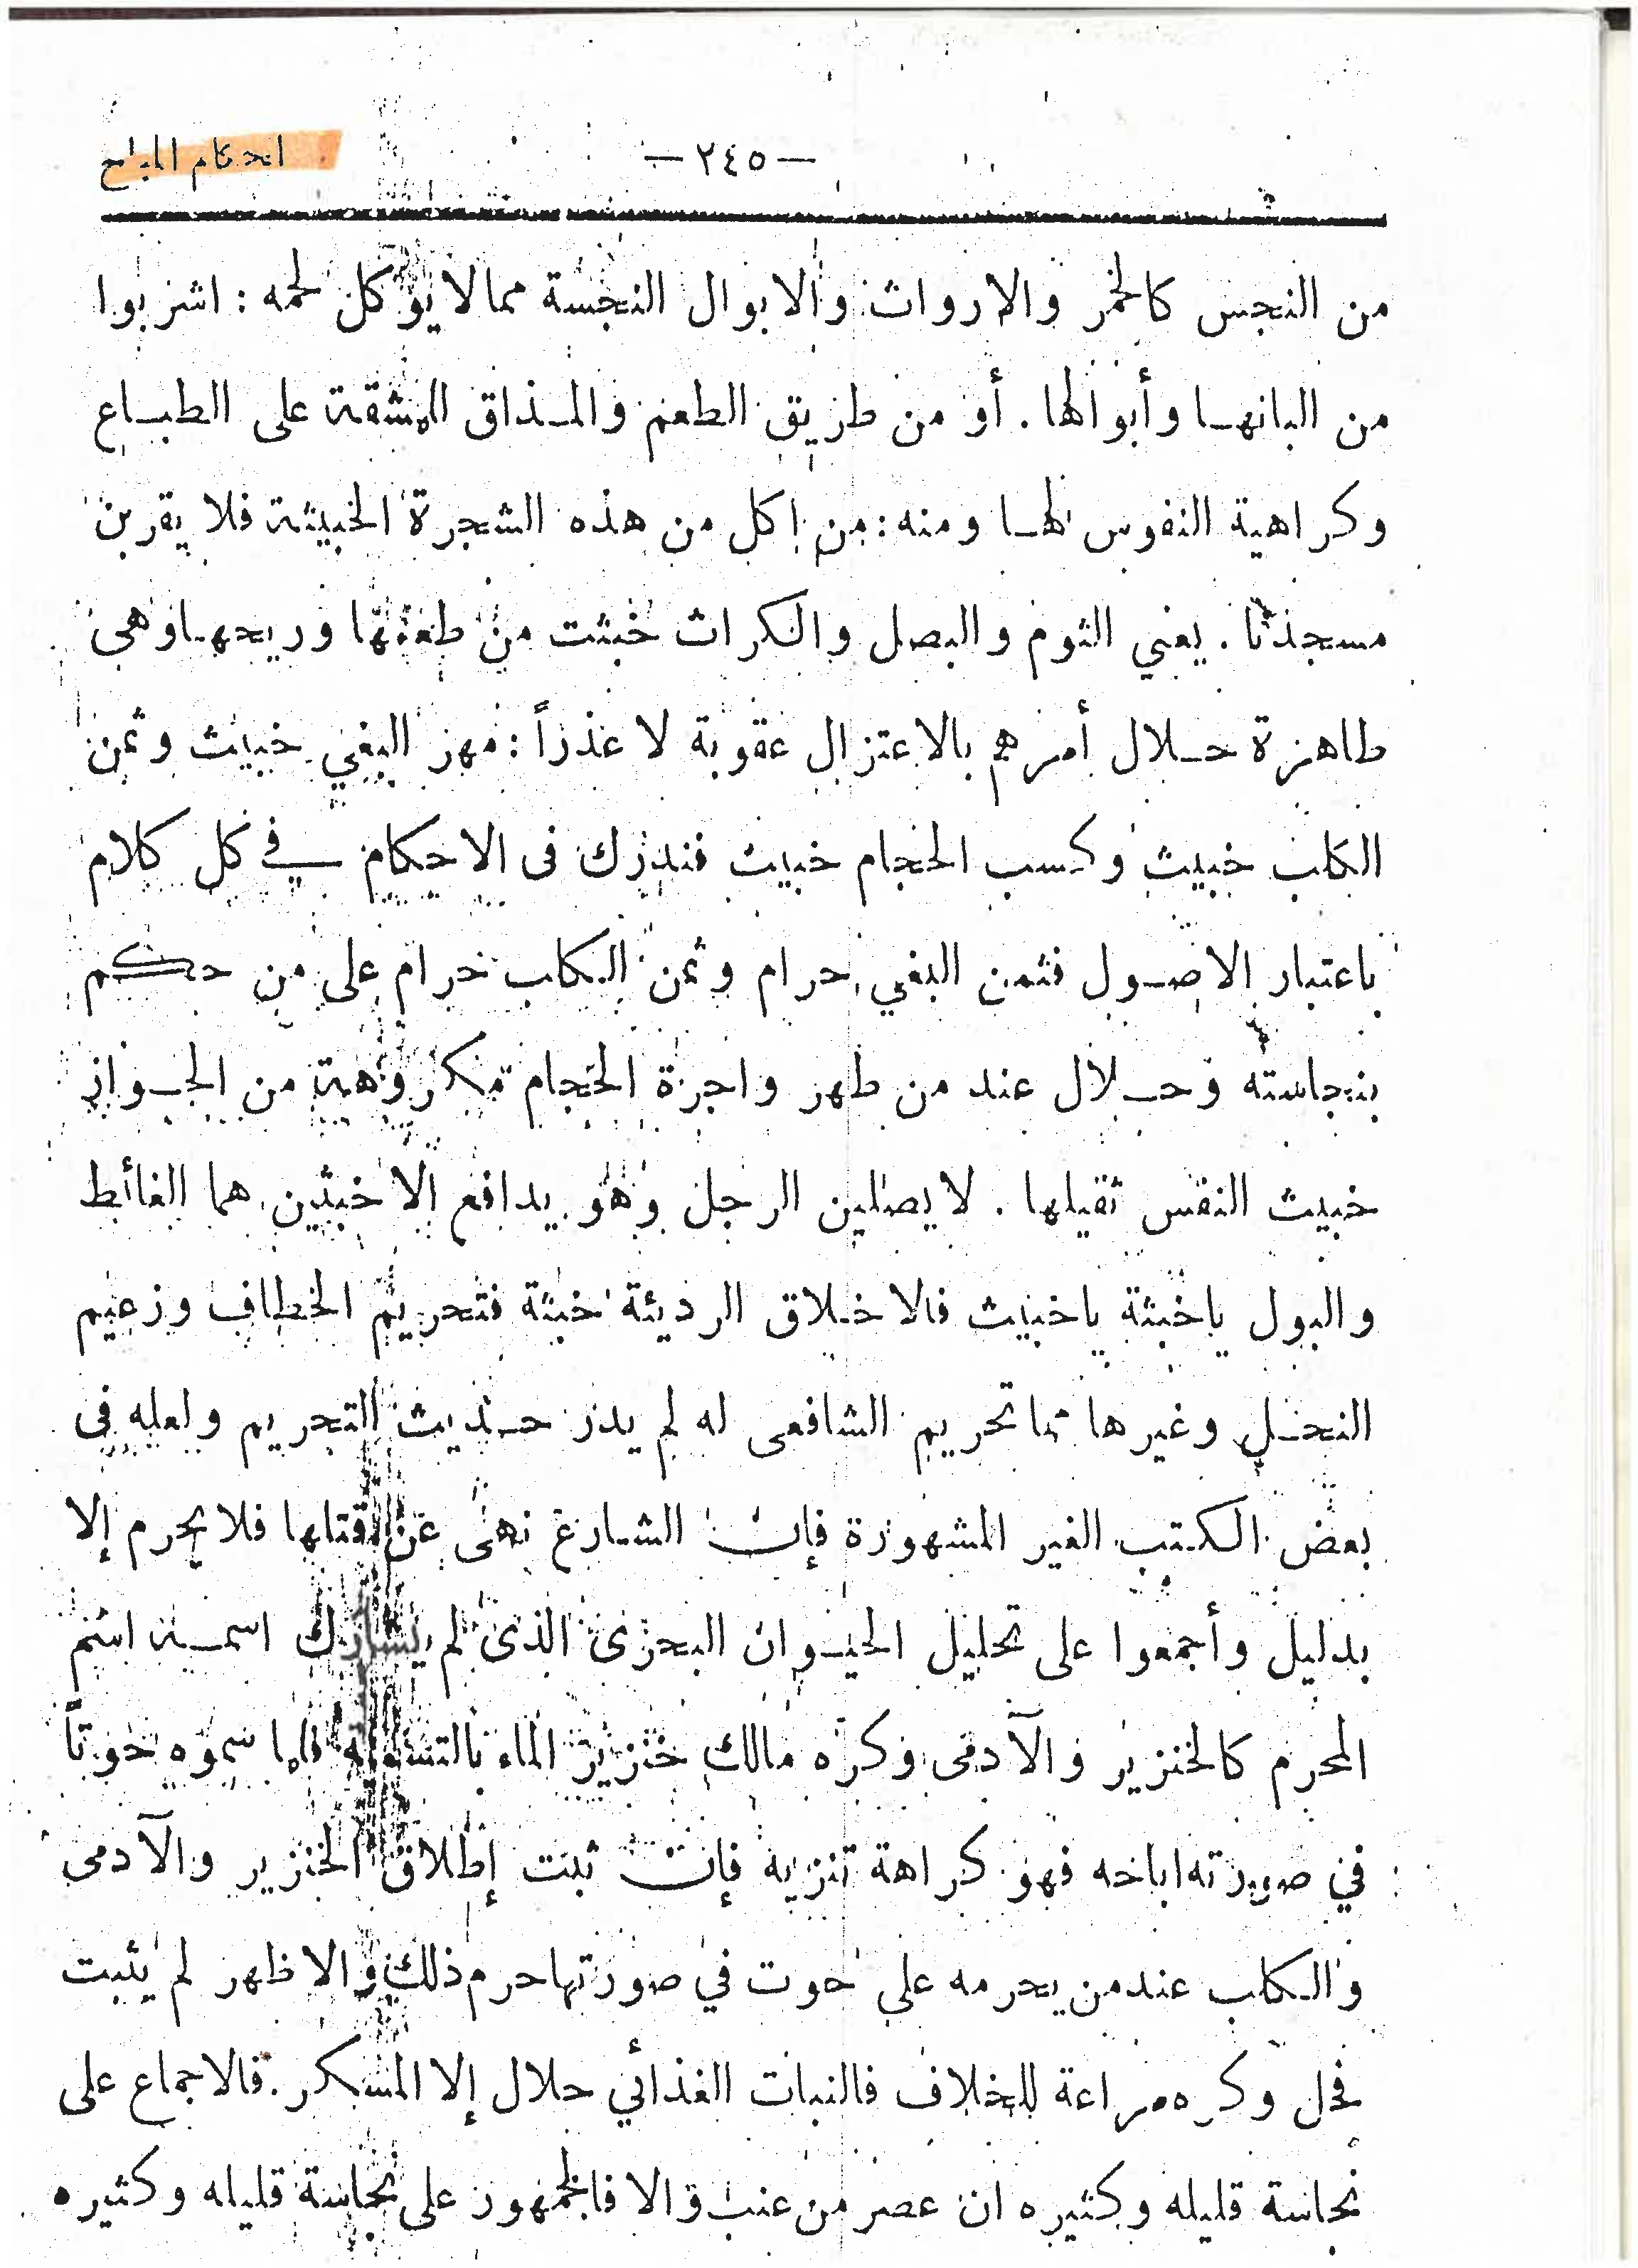 احكام المباح
— ٢٤٥ —
من النجس كالخمر والارواث والابوال النجسة مما لا يؤكل لحمه : اشربوا
من البانها وأبوالها . أو من طريق الطعم والمذاق المشقة على الطباع
وكراهية النفوس لها ومنه : من اكل من هذه الشجرة الخبيثة فلا يقربن
مسجدنا . يعني الثوم والبصل والكراث خبثت من طعمها وريحها وهي
طاهرة حلال أمرهم بالاعتزال عقوبة لا عذراً : مهر البغي خبيث وثمن
الكلب خبيث وكسب الحجام خبيث فندرك فى الاحكام في كل كلام
باعتبار الاصول فثمن البغي حرام وثمن الكلب حرام على من حكم
بنجاسته وحلال عند من طهر واجرة الحجام مكروهة من الجواز
خبيث النفس ثقيلها . لا يصلين الرجل وهو يدافع الاخبثين هما الغائط
والبول ياخبثة ياخبيث فالاخلاق الرديئة خبثة فتحريم الخطاف وزعيم
النحل وغيرها مما تحريم الشافعى له لم يدر حديث التحريم ولعله فى
بعض الكتب الغير المشهورة فإن الشارع نهى عن قتلها فلا يحرم إلا
بدليل وأجمعوا على تحليل الحيوان البحرى الذى لم يشارك اسمه اسم
المحرم كالخنزير والآدمى وكره مالك خنزير الماء فلما سموه حوتاً
في صورته اباحه فهو كراهة تنزيه فإن ثبت إطلاق الخنزير والآدمى
والكلب عند من يحرمه على حوت في صورتها حرم ذلك والاظهر لم يثبت
فحل وكره مراعة للخلاف فالنبات الغذائي حلال إلا المسكر . فالاجماع على
نجاسة قليله وكثيره ان عصر من عنب والا فالجمهور على نجاسة قليله وكثيره